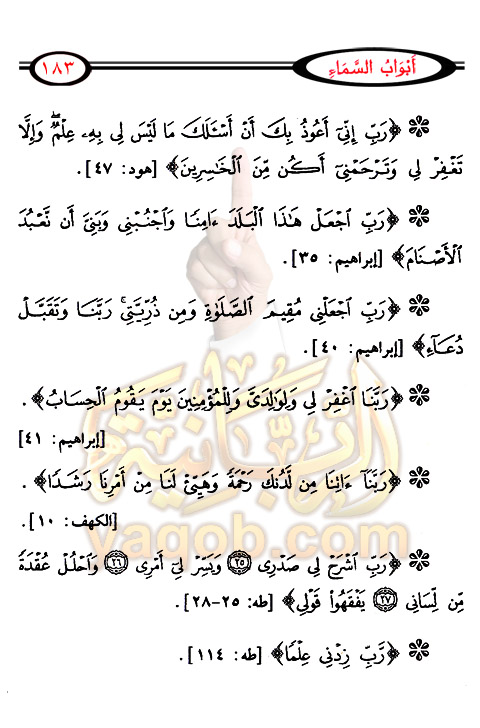 أَبْوَابُ السَّمَاءِ
١٨٣
﴿رَبِّ إِنِّيٓ أَعُوذُ بِكَ أَنْ أَسْـَٔلَكَ مَا لَيْسَ لِي بِهِۦ عِلْمٌۖ وَإِلَّا
تَغْفِرْ لِي وَتَرْحَمْنِيٓ أَكُن مِّنَ ٱلْخَاسِرِينَ﴾ [هود: ٤٧].
﴿رَبِّ ٱجْعَلْ هَٰذَا ٱلْبَلَدَ ءَامِنًا وَٱجْنُبْنِي وَبَنِيَّ أَن نَّعْبُدَ
ٱلْأَصْنَامَ﴾ [إبراهيم: ٣٥].
﴿رَبِّ ٱجْعَلْنِي مُقِيمَ ٱلصَّلَوٰةِ وَمِن ذُرِّيَّتِيۚ رَبَّنَا وَتَقَبَّلْ
دُعَآءِ﴾ [إبراهيم: ٤٠].
﴿رَبَّنَا ٱغْفِرْ لِي وَلِوَٰلِدَيَّ وَلِلْمُؤْمِنِينَ يَوْمَ يَقُومُ ٱلْحِسَابُ﴾.
[إبراهيم: ٤١]
﴿رَبَّنَآ ءَاتِنَا مِن لَّدُنكَ رَحْمَةً وَهَيِّئْ لَنَا مِنْ أَمْرِنَا رَشَدًا﴾.
[الكهف: ١٠].
﴿رَبِّ ٱشْرَحْ لِي صَدْرِي ٢٥ وَيَسِّرْ لِيٓ أَمْرِي ٢٦ وَٱحْلُلْ عُقْدَةً
مِّن لِّسَانِي ٢٧ يَفْقَهُوا۟ قَوْلِي﴾ [طه: ٢٥-٢٨].
﴿رَّبِّ زِدْنِي عِلْمًا﴾ [طه: ١١٤].
الربانية
yaqob.com